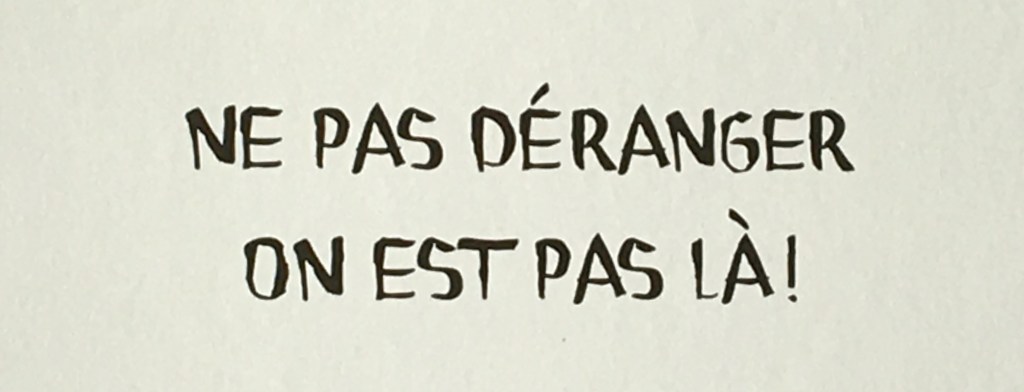 NE PAS DÉRANGER
ON EST PAS LÀ!